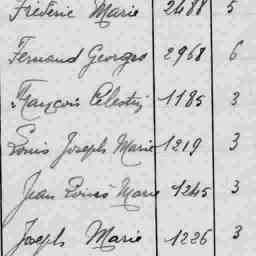 Frédéric Marie 2488 5
Fernand Georges 2968 6
François Célestin 1185 3
Louis Joseph Marie 1219 3
Jean Louis Marie 1245 3
Joseph Marie 1226 3